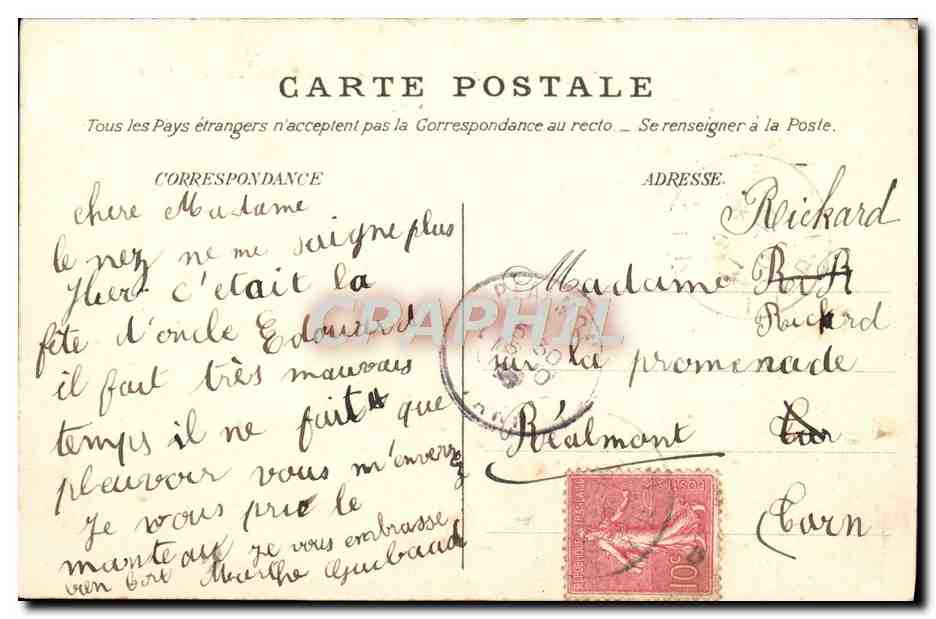 CARTE POSTALE
Tous les Pays étrangers n'acceptent pas la Correspondance au recto. _ Se renseigner à la Poste.
CORRESPONDANCE
chere Madame
le nez ne me saigne plus
Hier c'était la
fête d'oncle Edouard
il fait très mauvais
temps il ne fait que
pleuvoir vous m'enverrez
Je vous prie le
manteau je vous embrasse
bien fort Marthe Guibaud
ADRESSE
Rickard
Madame R R
Rickard
sur la promenade
Réalmont Tar
Tarn
CPARPHIL
REPUBLIQUE FRANÇAISE
POSTES
10c